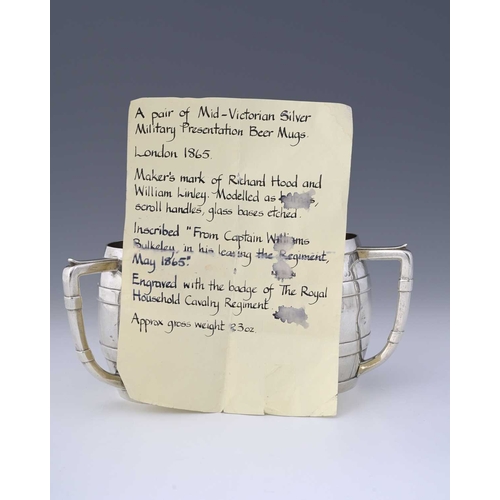 A pair of Mid-Victorian Silver
Military Presentation Beer Mugs.
London 1865.
Maker's mark of Richard Hood and
William Linley. Modelled as
scroll handles, glass bases etched.
Inscribed "From Captain Williams
Bulkeley, in his leaving the Regiment,
May 1865".
Engraved with the badge of The Royal
Household Cavalry Regiment
Approx gross weight 23oz